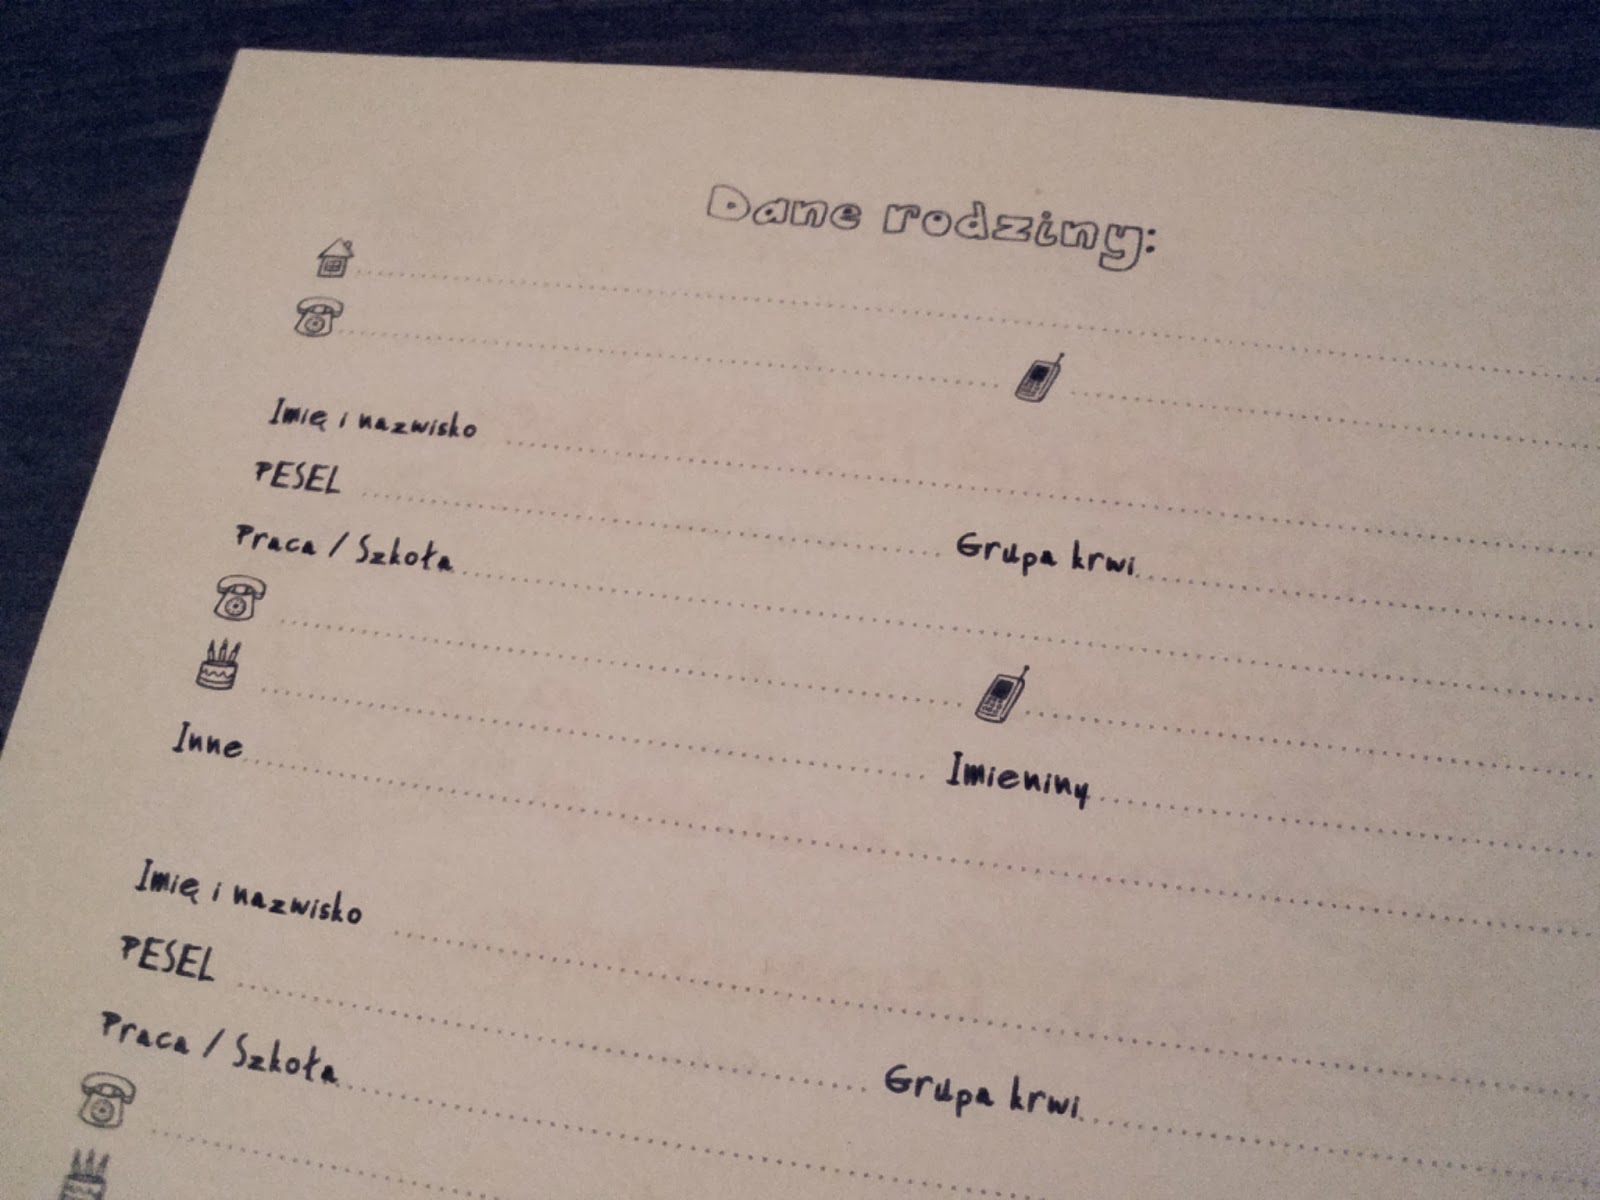 Dane rodziny:
Imię i nazwisko
PESEL Grupa krwi
Praca / Szkoła
Imieniny
Inne
Imię i nazwisko
PESEL Grupa krwi
Praca / Szkoła